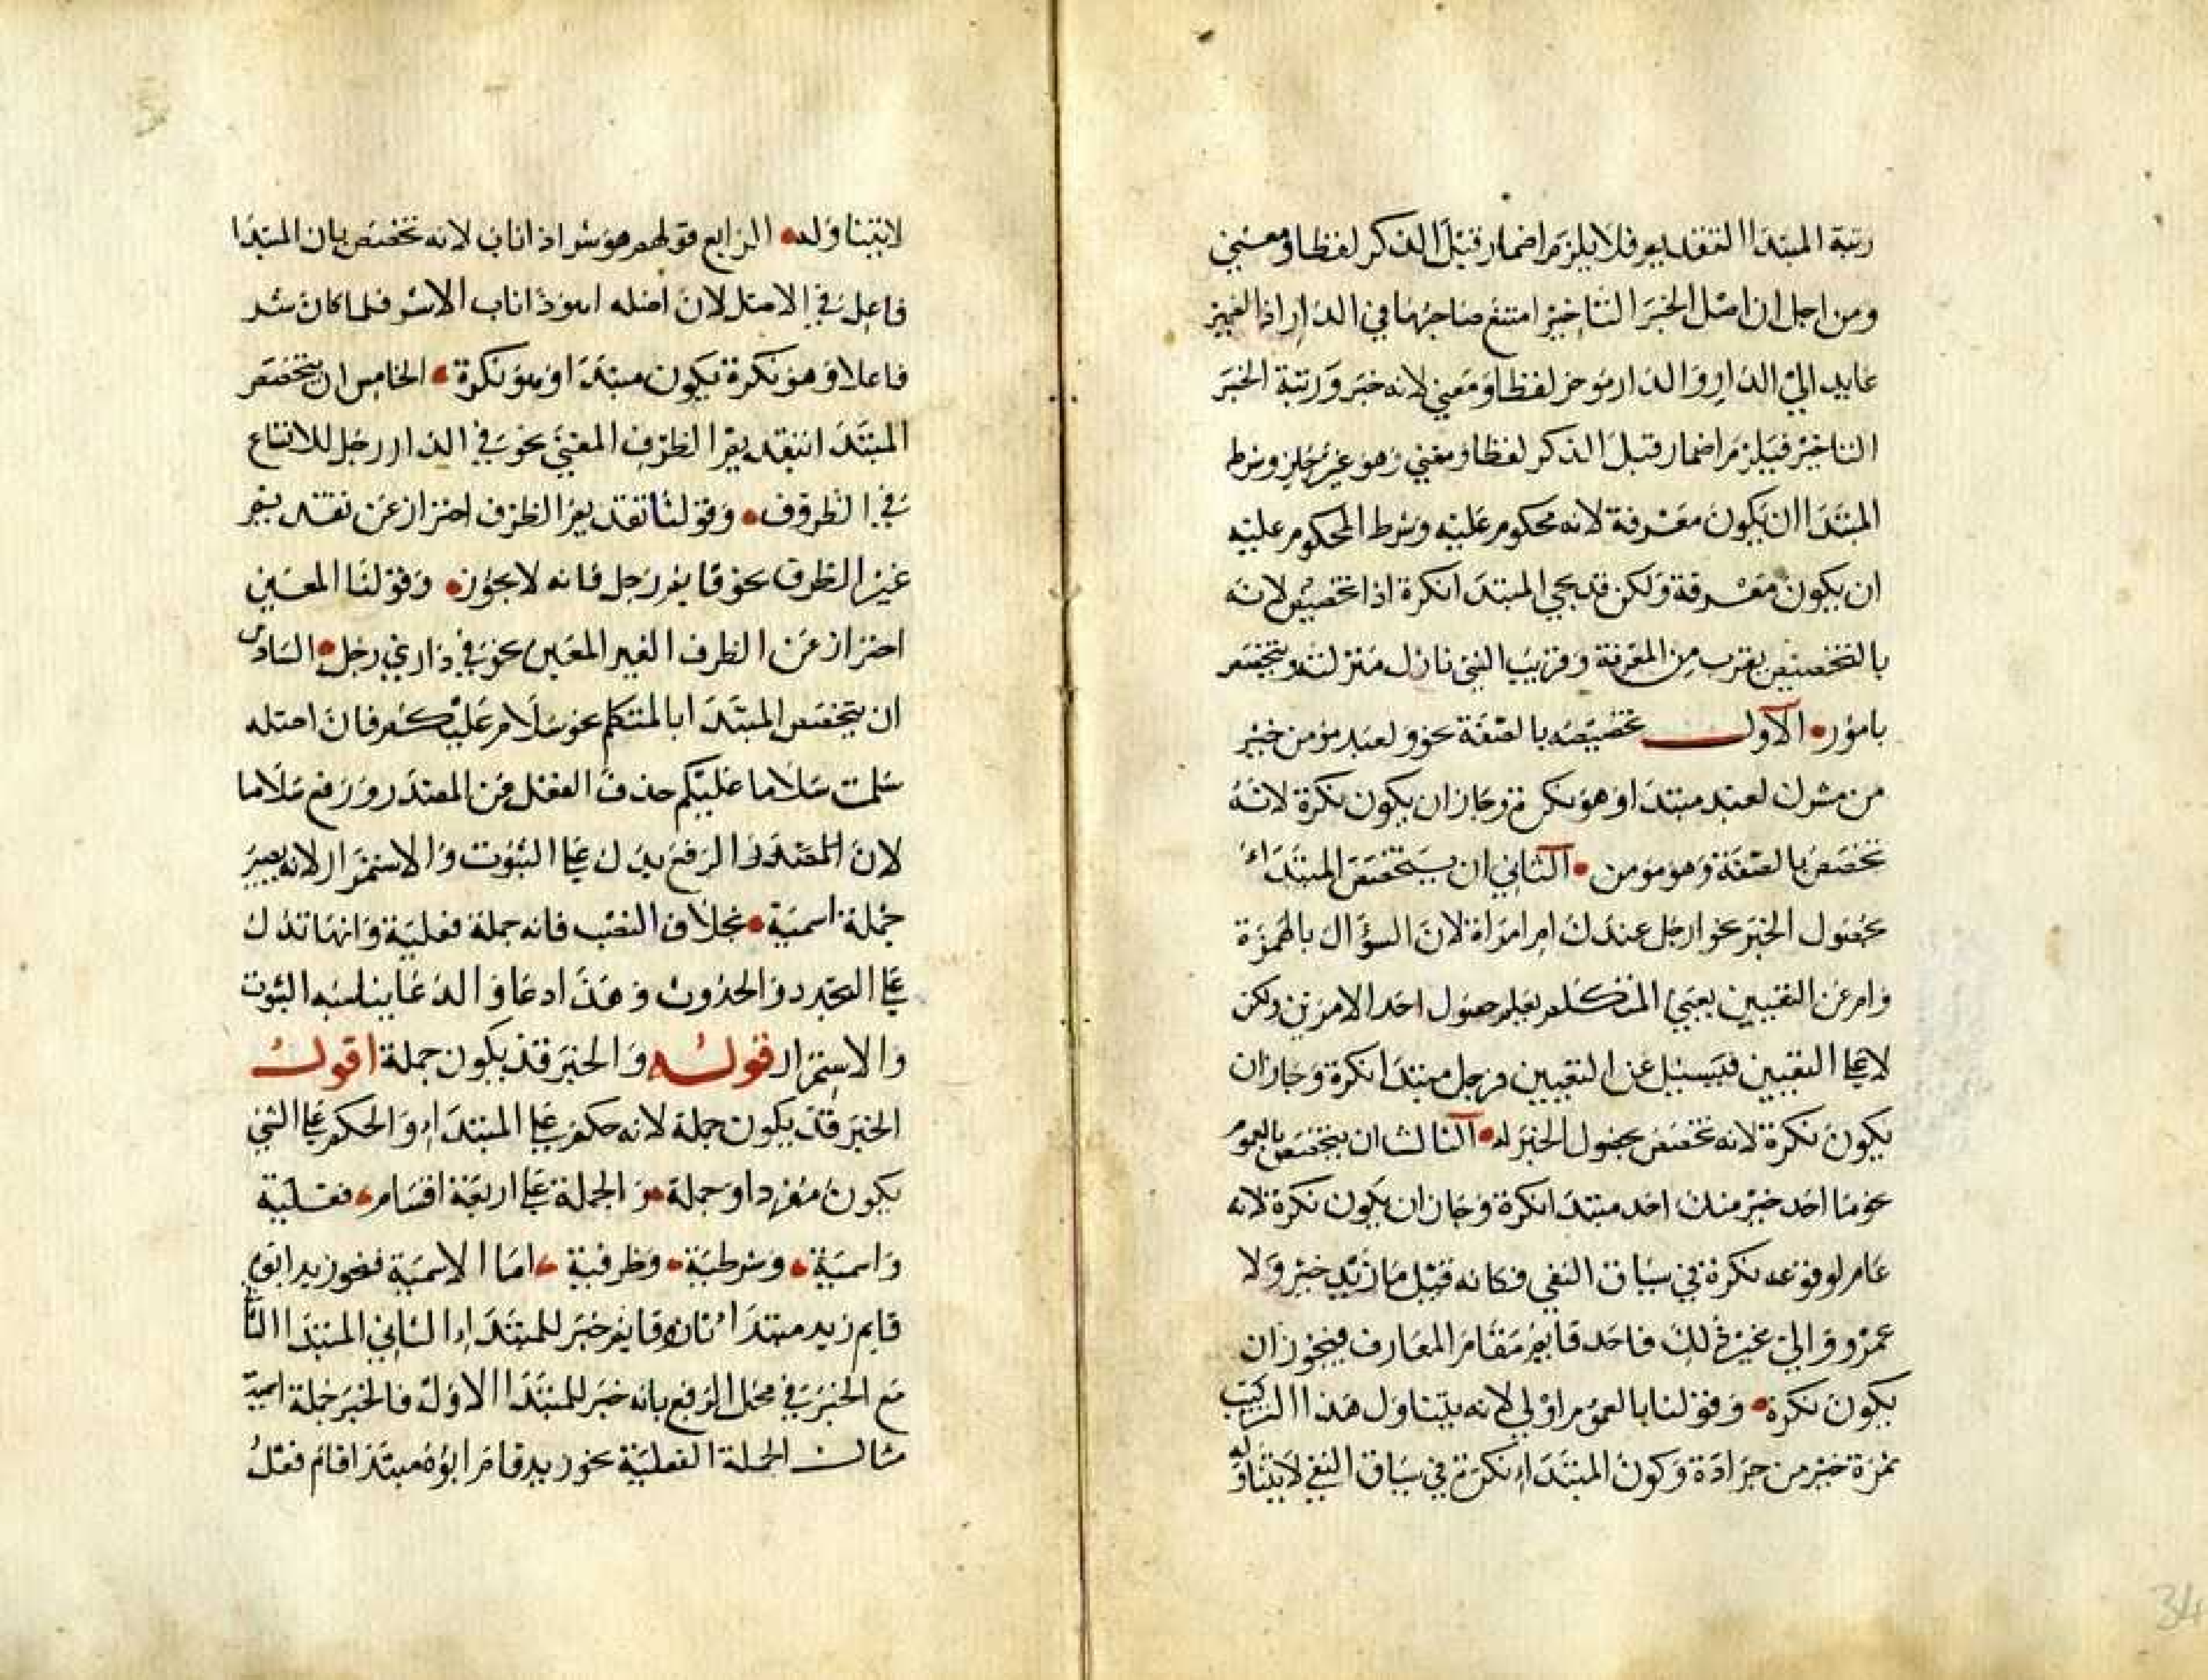 رتبة المبتدا التقديم فلا يلزم اضمار قبل الذكر لفظا ومعني
ومن اجل ان اصل الخبر التاخير امتنع صاحبها في الدار اذ الضمير
عايد الي الدار والدار موخر لفظا ومعني لانه خبر ورتبة الخبر
التاخير فيلزم اضمار قبل الذكر لفظا ومعني وهو غير جايز وشرط
المبتدا ان يكون معرفة لانه محكوم عليه وشرط المحكوم عليه
ان يكون معرفة ولكن قد يجي المبتدا نكرة اذا تخصيص لانه
بالتخصيص يقرب من المعرفة وقريب الشي نازل منزلته ويتخصص
بامور الاول تخصيصه بالصفة نحو ولعبد مومن خير
من مشرك لعبد مبتدا وهو نكرة وجاز ان يكون نكرة لانه
تخصص بالصفة وهو مومن الثاني ان يتخصص المبتداء
بحصول الخبر نحو ارجل عندك ام امراة لان السؤال بالهمزة
وام عن التعيين يعني المتكلم يعلم حصول احد الامرين ولكن
لا علي التعيين فيسيل عن التعيين فرجل مبتدا نكرة وجاز ان
يكون نكرة لانه تخصص بحصول الخبر له الثالث ان يتخصص بالعموم
نحو ما احد خير منك احد مبتدا نكرة وجاز ان يكون نكرة لانه
عام لوقوعه نكرة في سياق النفي فكانه قيل ما زيد خير ولا
عمرو والي غير ذلك فاحد قايم مقام المعارف فيجوز ان
يكون نكرة وقولنا بالعموم اولي لانه يتناول هذا التركيب
تمرة خير من جرادة وكون المبتداء نكرة في سياق النفي لا يتناوله
لا يتناوله الرابع قولهم هو شر اذا ناب لانه تخصص بان المبتدا
فاعل في الاصل لان اصله اهر ذا ناب الا شر فلما كان شر
فاعلا وهو نكرة يكون مبتدا وهو نكرة الخامس ان يتخصص
المبتدا بتقديم الظرف المعين نحو في الدار رجل للاتساع
في الظروف وقولنا تقديم الظرف احتراز عن تقديم
غير الظرف نحو قايم رجل فانه لا يجوز وقولنا المعين
احتراز عن الظرف الغير المعين نحو في دار ي رجل السادس
ان يتخصص المبتدا بالمتكلم نحو سلام عليكم فان اصله
سلمت سلاما عليكم حذف الفعل من المصدر ورفع سلاما
لان المصدر الرفع يدل علي الثبوت والاستمرار لانه يصير
جملة اسمية بخلاف النصب فانه جملة فعلية وانها تدل
علي التجدد والحدوث وهذا دعا والدعا يناسبه الثبوت
والاستمرار قوله والخبر قد يكون جملة اقول
الخبر قد يكون جملة لانه حكم علي المبتداء والحكم علي الشي
يكون مفردا وجملة والجملة علي اربعة اقسام فعلية
واسمية وشرطية وظرفية اما الاسمية فنحو زيد ابوه
قايم زيد مبتدا ثان وقايم خبر للمبتداء الثاني المبتدا الثاني
مع الخبر في محل الرفع بانه خبر للمبتدا الاول فالخبر جملة اسمية
مثال الجملة الفعلية نحو زيد قام ابوه مبتدا قام فعل
34